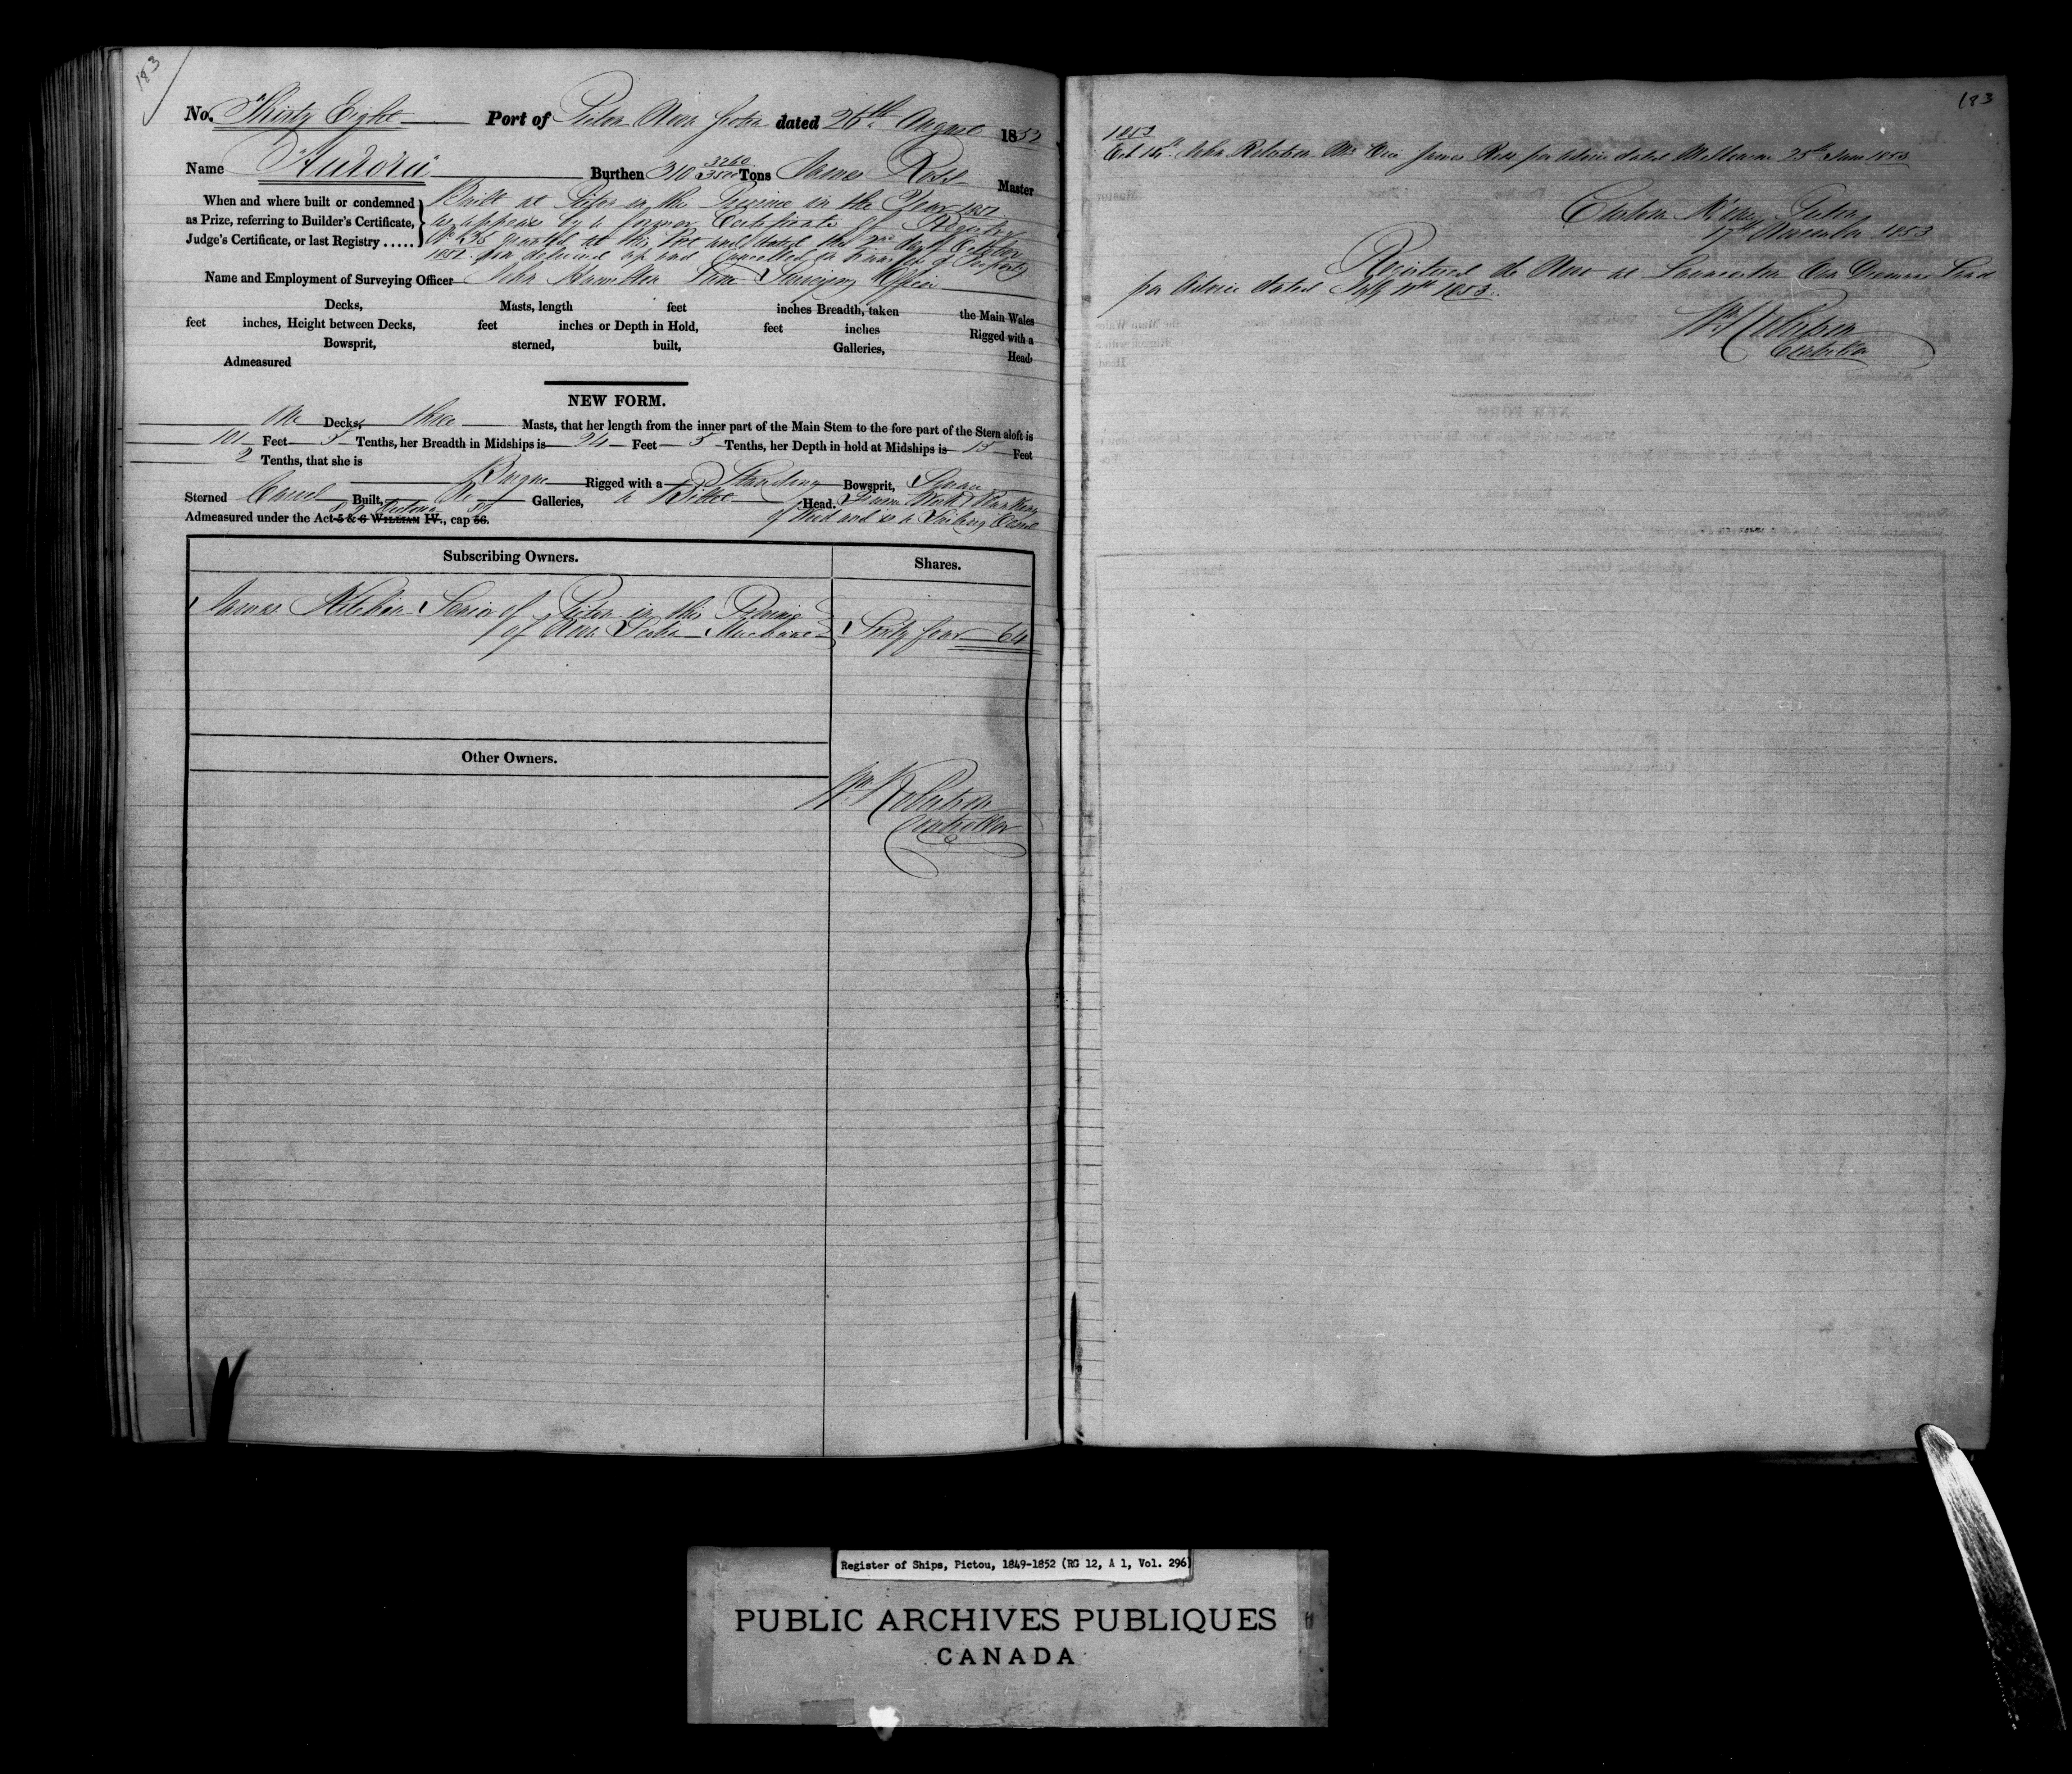 183
No. Thirty Eight Port of Pictou Nova Scotia dated 26th August 1852
Name "Aurora" Burthen 310 3260/3500 Tons James Ross Master
When and where built or condemned as Prize, referring to Builder's Certificate, Judge's Certificate, or last Registry .....
Built at Pictou in the Province in the Year 1851
as appears by a former Certificate of Registry
No 36 granted at this Port and dated the 2nd day of October
1851 now delivered up and Cancelled Transfer of Property
Name and Employment of Surveying Officer John Hamilton Lane Surveying Officer
Decks, Masts, length feet inches Breadth, taken the Main Wales
feet inches, Height between Decks, feet inches or Depth in Hold, feet inches Rigged with a
Bowsprit, sterned, built, Galleries, Head
Admeasured
NEW FORM.
One Decks, three Masts, that her length from the inner part of the Main Stem to the fore part of the Stern aloft is
101 Feet Tenths, her Breadth in Midships is 24 Feet 5 Tenths, her Depth in hold at Midships is 15 Feet
2 Tenths, that she is
Barque Rigged with a Standing Bowsprit, Square
Sterned Carvel Built, No Galleries, a Billet Head. Frame Work & Planking
Admeasured under the Act 5 & 6 WILLIAM IV., cap 56. 8 & 9 Victoria of Wood and is a Sailing Vessel
Subscribing Owners. Shares.
James Kitchin Senior of Pictou in this Province
of Nova Scotia Merchant Sixty four 64
Other Owners.
Wm Robertson
Controller
183
1853
Oct 14th John Robertson Mr Vice James Ross per advice dated Melbourne 25th June 1853
Custom House Pictou
17th November 1853
Registered de Novo at Launceston Van Diemens Land
per Advice dated July 11th 1853
Wm Robertson
Controller
Register of Ships, Pictou, 1849-1852 (RG 12, A 1, Vol. 296)
PUBLIC ARCHIVES PUBLIQUES
CANADA